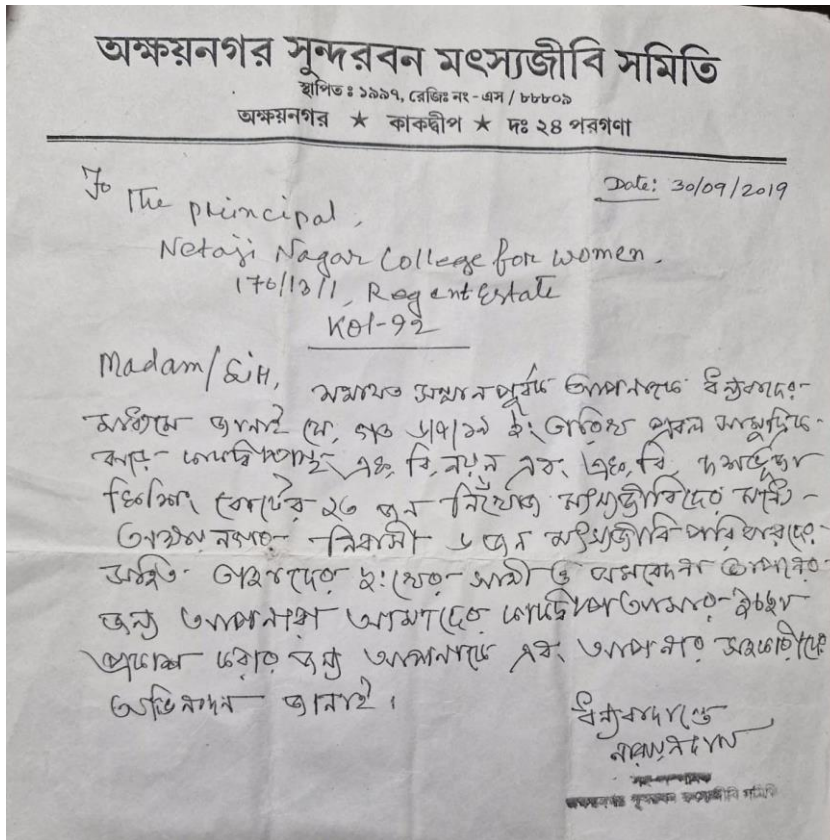 অক্ষয়নগর সুন্দরবন মৎস্যজীবি সমিতি
স্থাপিত : ১৯৯৭, রেজিঃ নং - এস / ৮৮৮০৯
অক্ষয়নগর ★ কাকদ্বীপ ★ দঃ ২৪ পরগণা
Date: 30/09/2019
To
The principal,
Netaji Nagar College for women.
170/13/1, Regent Estate
KOl-92
Madam/Sir,
সম্মান পূর্বক আপনাকে ধন্যবাদের
মাধ্যমে জানাই যে, গত ইং তারিখ প্রবল সামুদ্রিক
ঝড়ে এফ, বি, নয়ন এবং এফ, বি, দশভূজা
ফিশিং বোটের ২৩ জন নিখোঁজ মৎস্যজীবিদের মধ্যে
অক্ষয়নগর নিবাসী ৬ জন মৎস্যজীবি পরিবারদের
সহিত দুঃখের সাথী ও সমবেদনা জ্ঞাপনের
জন্য আপনারা আমাদের কাকদ্বীপ আসার ইচ্ছা
প্রকাশ করার জন্য আপনাকে এবং আপনার সহকারীদের
অভিনন্দন জানাই।
ধন্যবাদান্তে
সুন্দরবন মৎস্যজীবি সমিতি